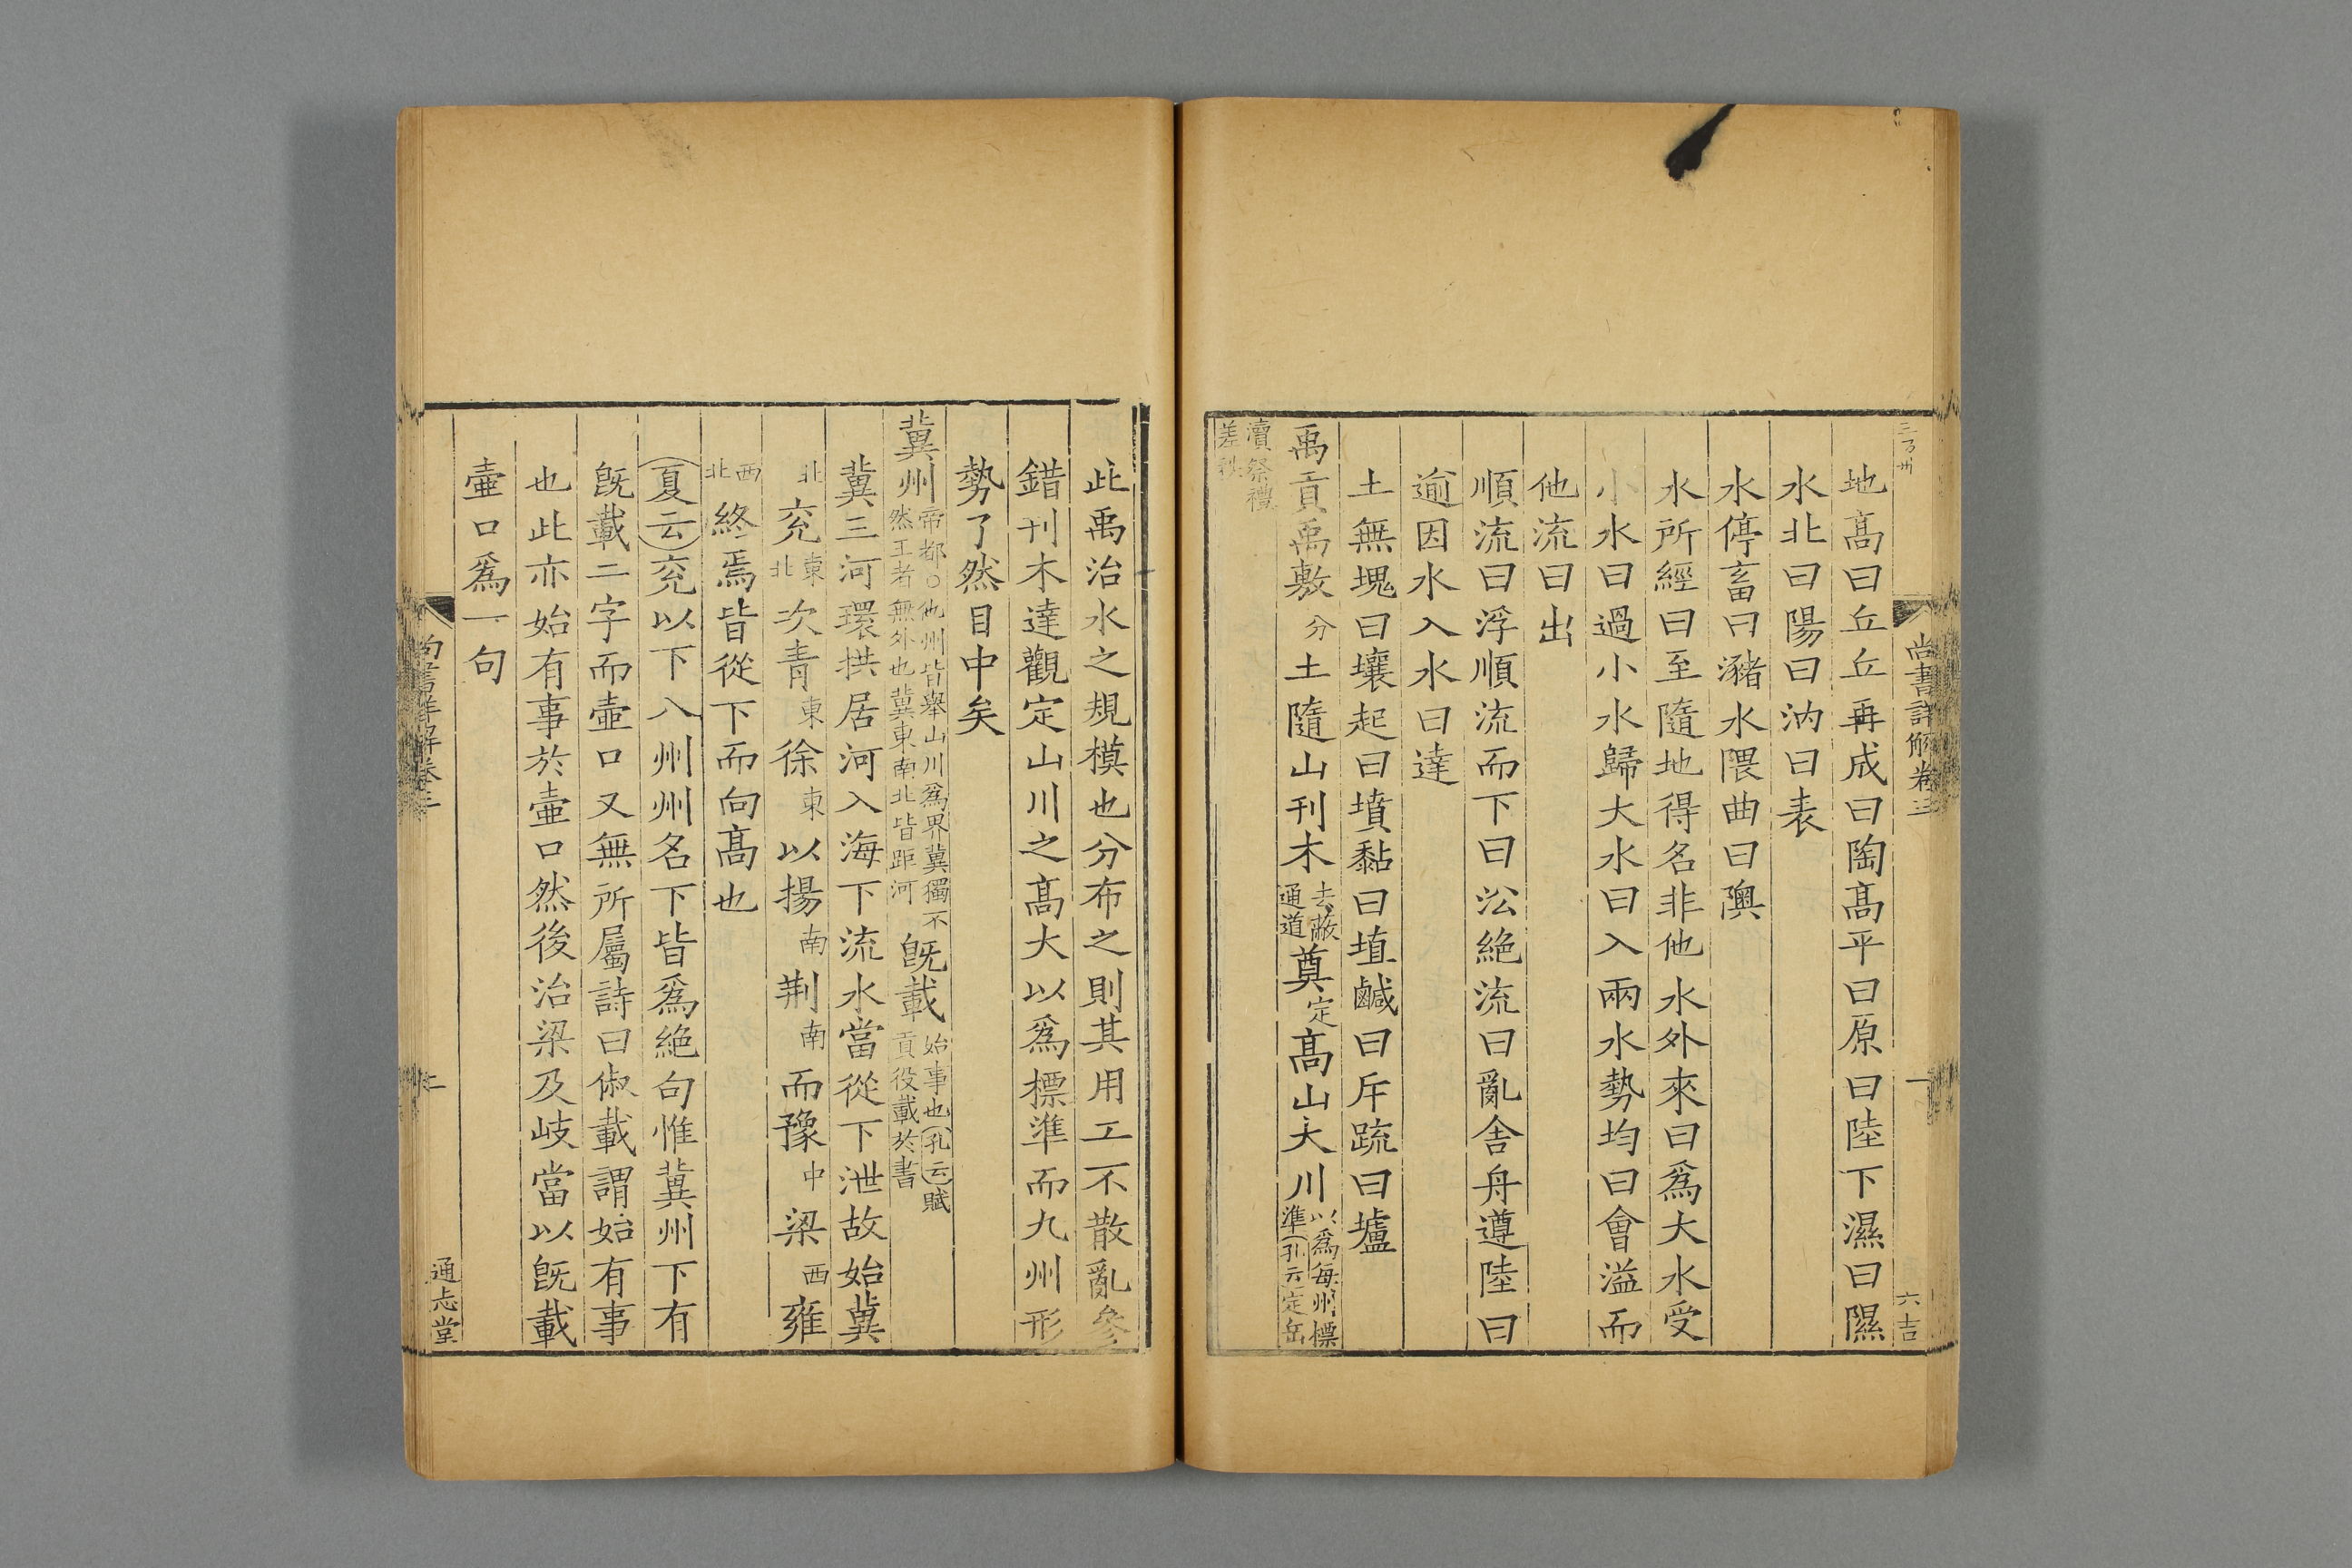 尚書詳解卷三
一
地高曰丘丘再成曰陶高平曰原曰陸下濕曰隰
水北曰陽曰汭曰表
水停畜曰瀦水隈曲曰隩
水所經曰至隨地得名非他水外來曰爲大水受
小水曰過小水歸大水曰入兩水勢均曰會溢而
他流曰出
順流曰浮順流而下曰沿絶流曰亂舍舟遵陸曰
逾因水入水曰達
土無塊曰壤起曰墳黏曰埴鹹曰斥疏曰壚
禹貢禹敷分土隨山刊木去蔽通道奠定高山大川以爲每州標準孔云定岳
瀆祭禮差秩
此禹治水之規模也分布之則其用工不散亂參
錯刊木達觀定山川之高大以爲標準而九州形
勢了然目中矣
冀州帝都○他州皆舉山川爲界冀獨不然王者無外也冀東南北皆距河旣載始事也孔云賦貢役載於書
冀三河環拱居河入海下流水當從下泄故始冀
北兖東北次青東徐東以揚南荆南而豫中梁西雍
西北終焉皆從下而向高也
夏云兖以下八州州名下皆爲絶句惟冀州下有
旣載二字而壺口又無所屬詩曰俶載謂始有事
也此亦始有事於壺口然後治梁及岐當以旣載
壺口爲一句
尚書詳解卷三
二
通志堂